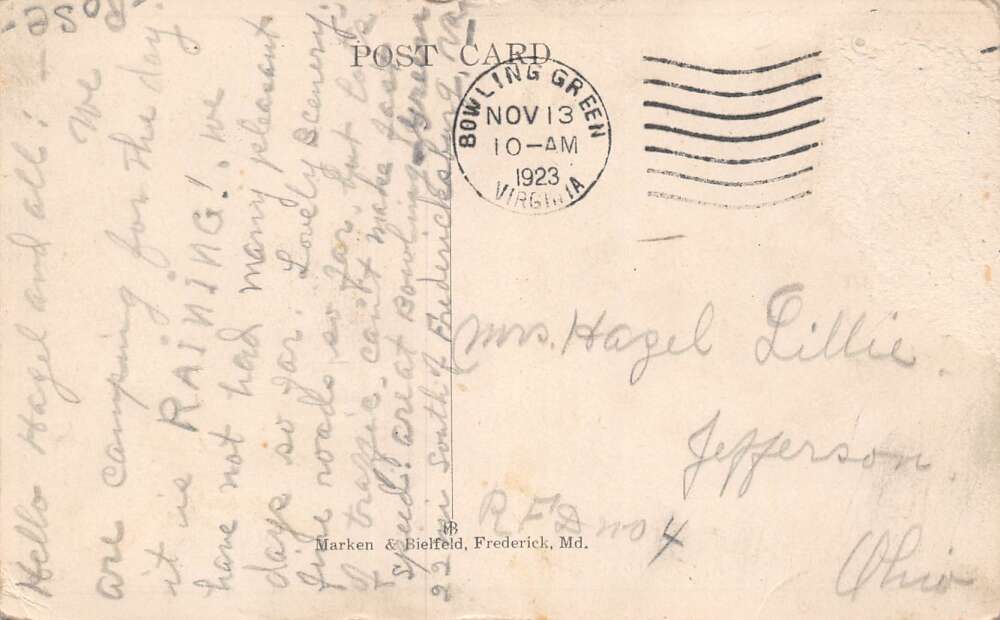 POST CARD
BOWLING GREEN
NOV 13
10-AM
1923
VIRGINIA
Hello Hazel and all: -
We
are camping for the day.
it is RAINING! We
have not had many pleasant
days so far. Lovely Scenery,
fine roads so far. but lots
of traffic. can't make fast
speed! are at Bowling Green
22 mi South of Fredericksburg, Va
Mrs. Hazel Lillie.
Jefferson.
R F D no 4
Ohio
Marken & Bielfeld, Frederick, Md.